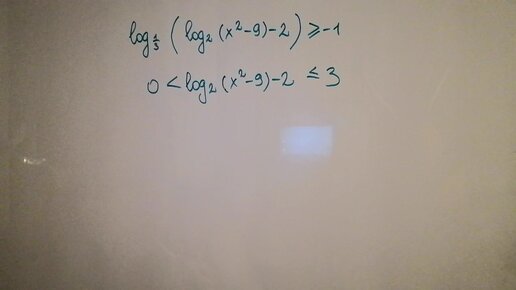 log_{1/3} (log₂ (x²-9)-2) ⩾ -1
0 < log₂ (x²-9)-2 ≤ 3